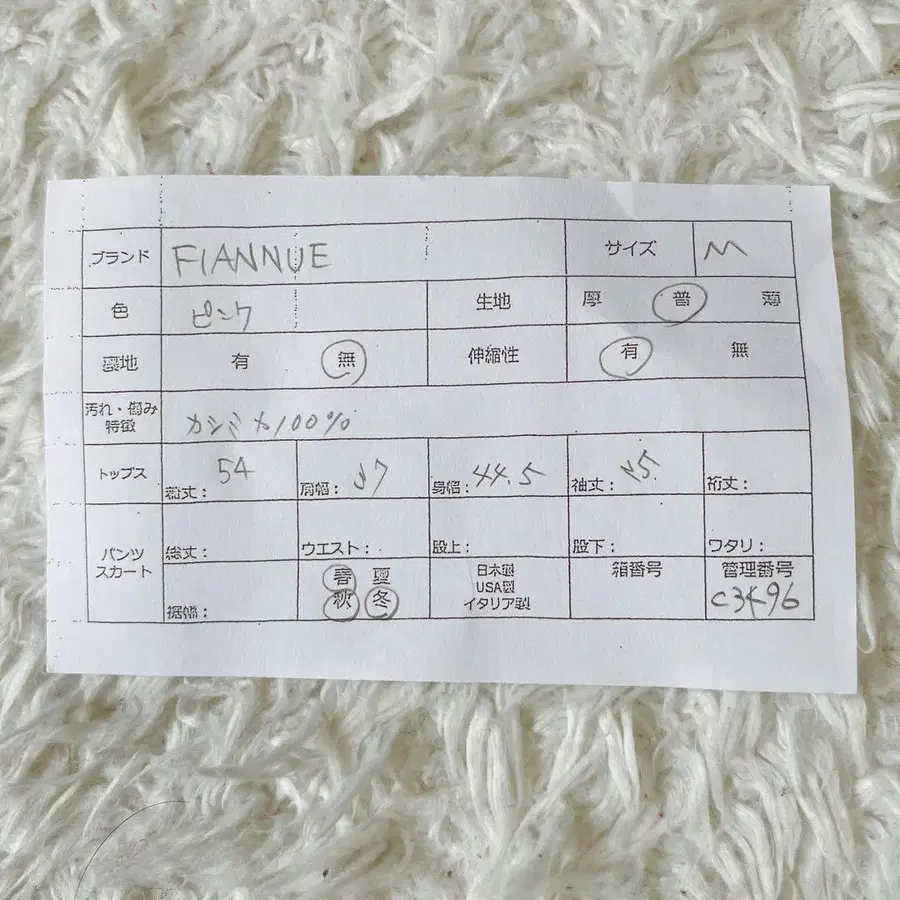 ブランド FIANNUE サイズ M
色 ピンク 生地 厚 普 薄
裏地 有 無 伸縮性 有 無
汚れ・傷み
特徴 カシミヤ100%
トップス 総丈： 54 肩幅： 37 身幅： 44.5 袖丈： 裄丈：
パンツ
スカート 総丈： ウエスト： 股上： 股下： ワタリ：
裾幅： 春 夏
秋 冬
日本製
USA製
イタリア製
箱番号
管理番号
C3496